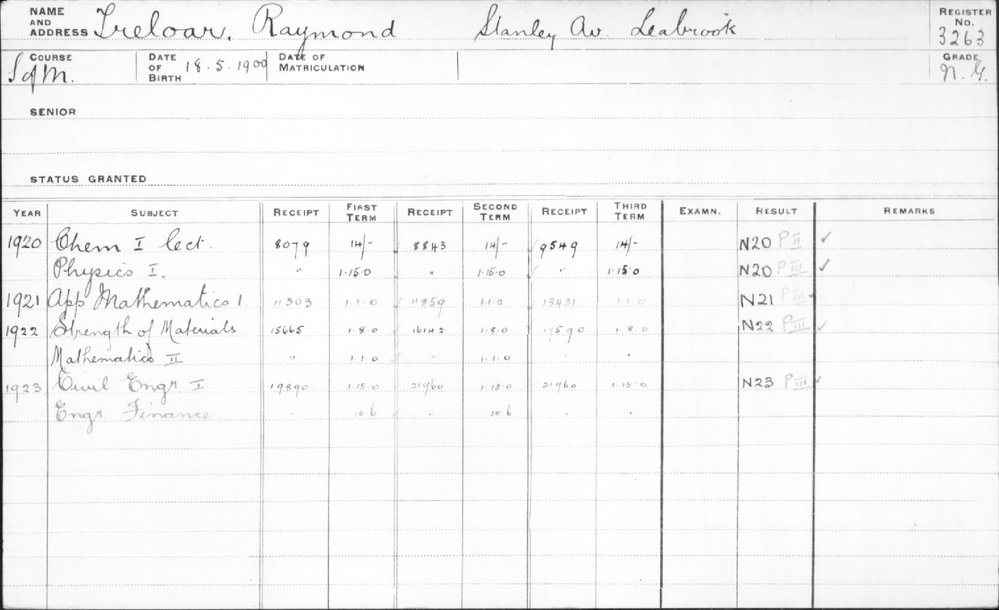 NAME AND ADDRESS Treloar, Raymond Stanley Av. Leabrook REGISTER No. 3263
COURSE S of M. DATE OF BIRTH 18.5.1900 DATE OF MATRICULATION GRADE N.G.
SENIOR
STATUS GRANTED
YEAR SUBJECT RECEIPT FIRST TERM RECEIPT SECOND TERM RECEIPT THIRD TERM EXAMN. RESULT REMARKS
1920 Chem I lect. 8079 14/- 8843 14/- 9549 14/- N20 P II ✓
Physics I. " 1.15.0 " 1.15.0 " 1.15.0 N20 P III ✓
1921 App Mathematics 1 11303 1.1.0 11859 1.1.0 13431 1.1.0 N21 P III
1922 Strength of Materials 15665 1.8.0 16142 1.8.0 17590 1.8.0 N22 P III ✓
Mathematics II " 1.1.0 " 1.1.0
1923 Civil Engr I 19890 1.15.0 21960 1.15.0 21960 1.15.0 N23 P III ✓
Engr Finance " 10.6 " 10.6